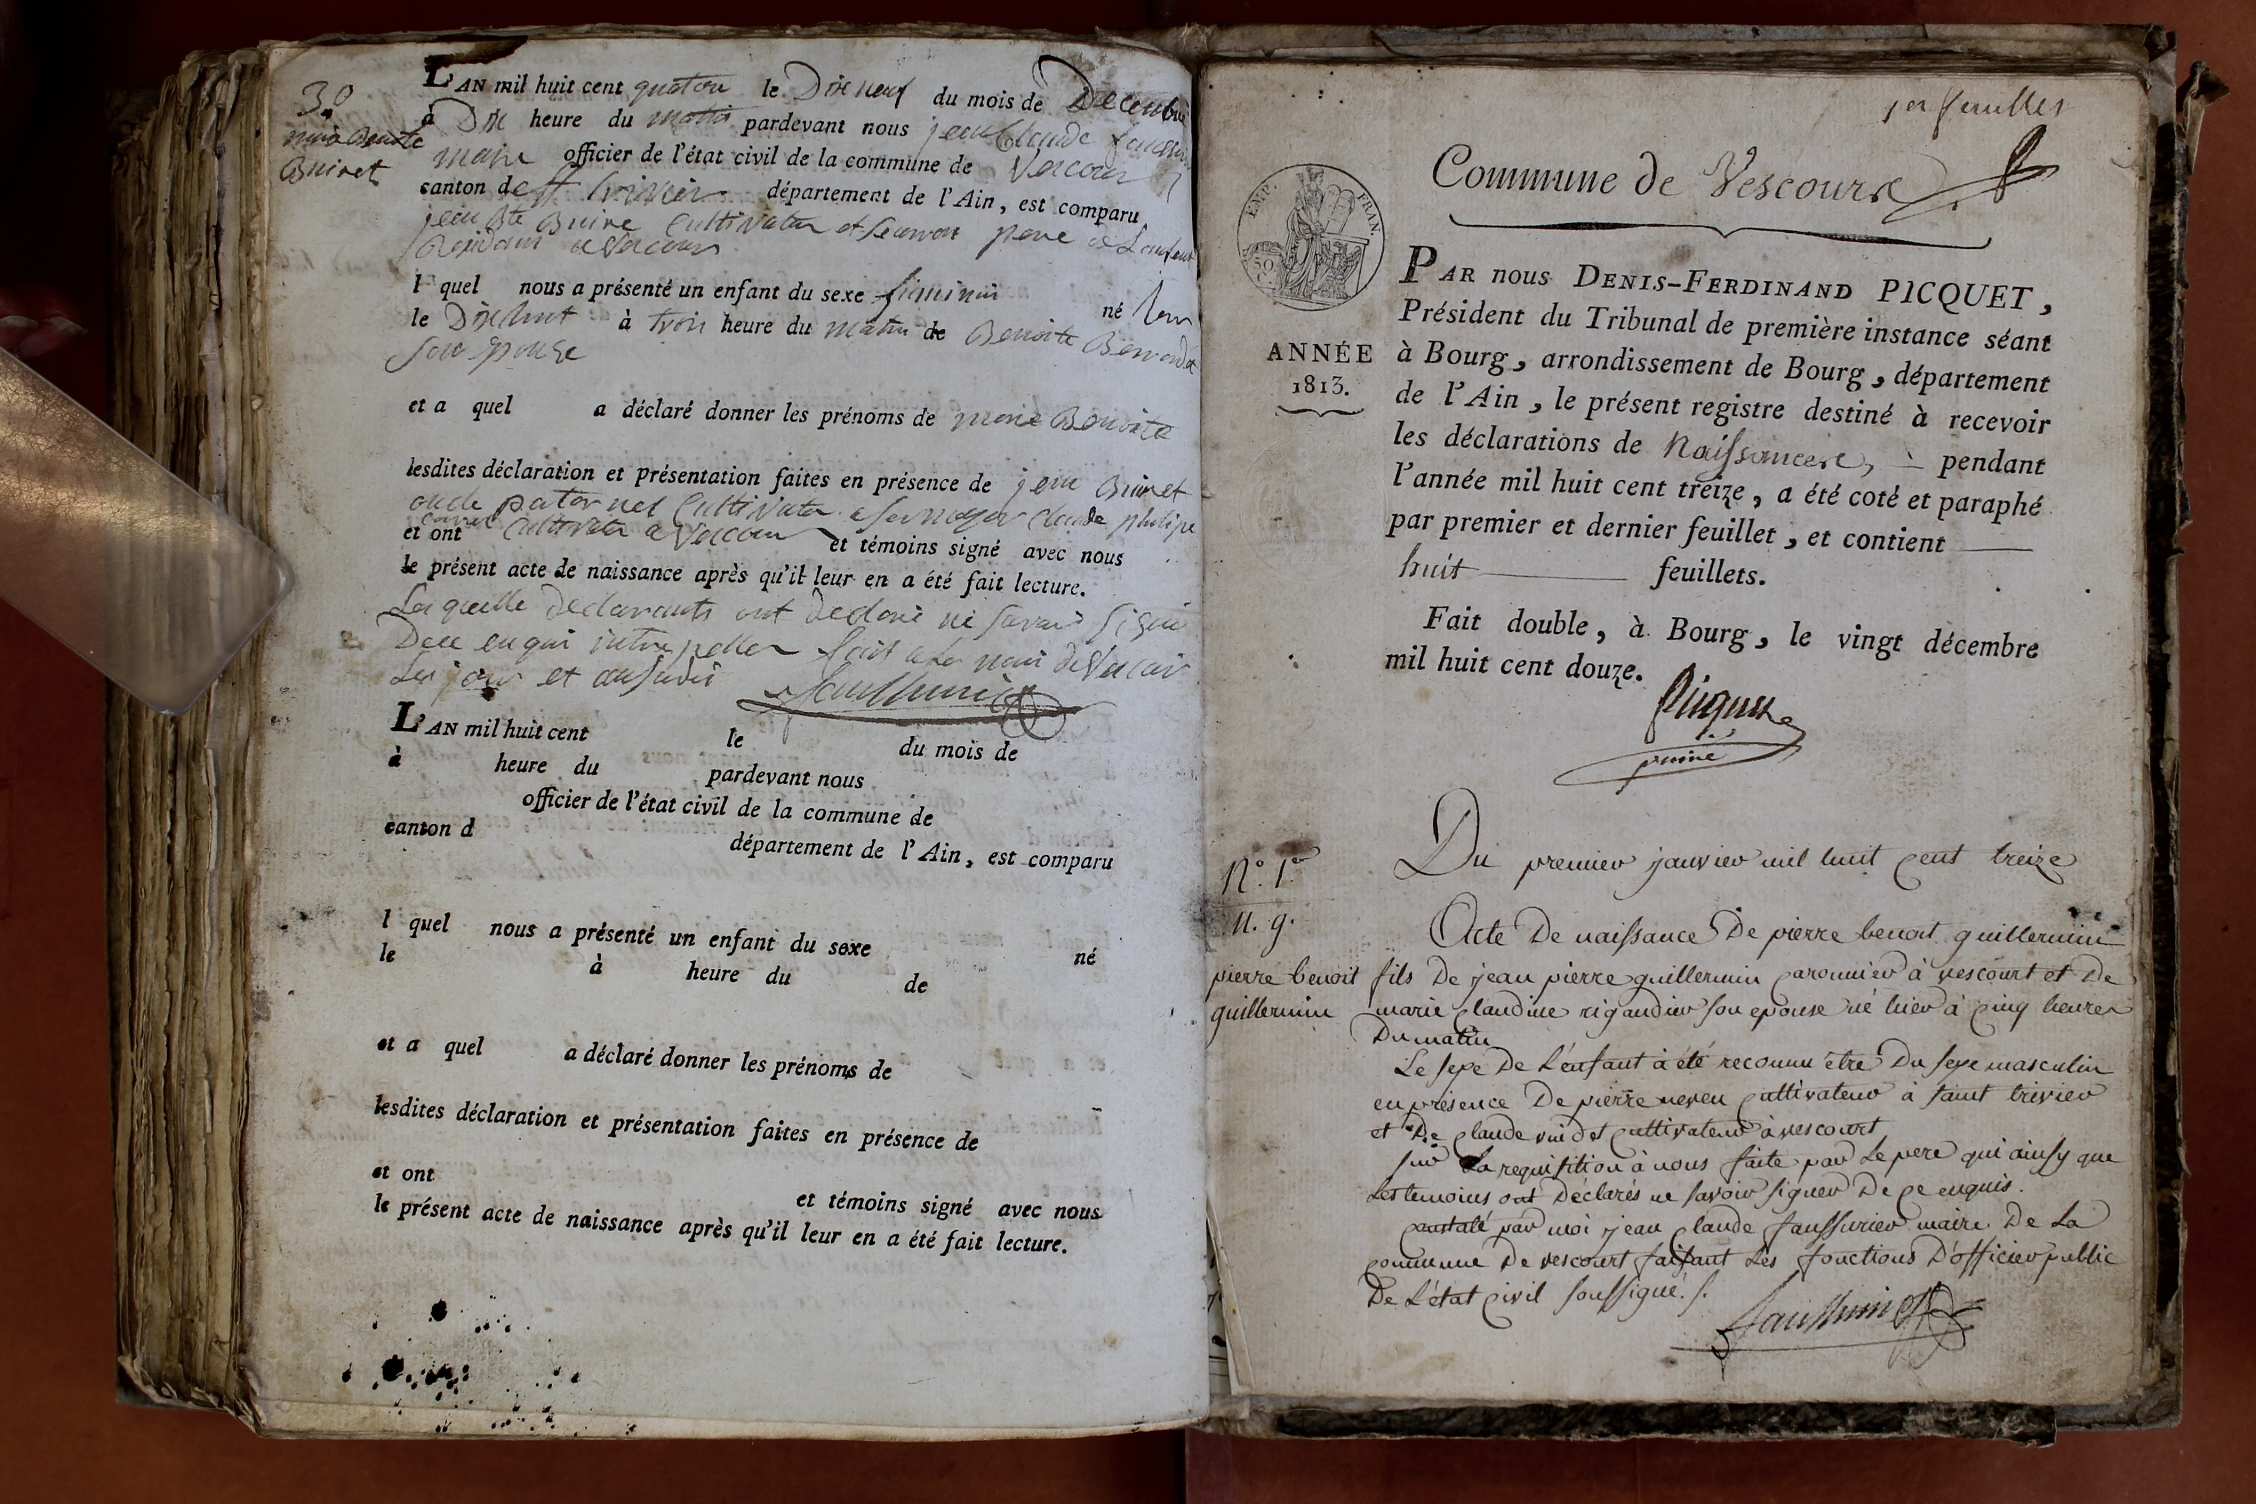 30
marie Benoite
Buiret
L'AN mil huit cent quatorze le Dix neuf du mois de Decembre
à Dix heure du matin pardevant nous jean Claude faussurier
maire officier de l'état civil de la commune de Vescours
canton de st trivier département de l'Ain, est comparu
jean Bte Buiret Cultivateur et pere de Lenfant
Residant a Vescours
l quel nous a présenté un enfant du sexe feminin né
le Dix huit à trois heure du matin de Benoite
son Epouse
et a quel a déclaré donner les prénoms de marie Benoite
lesdites déclaration et présentation faites en présence de jean Buiret
oncle paternel Cultivateur a Claude philipe
Cultivateur a Vescours
et ont et témoins signé avec nous
le présent acte de naissance après qu'il leur en a été fait lecture.
Lesquelle declarants ont declaré ne savoir signé
De ce enqui interpeller fait a La mairi de Vescours
Les jour et an susdis
faussurier
L'AN mil huit cent le du mois de
à heure du pardevant nous
officier de l'état civil de la commune de
canton d département de l'Ain, est comparu
l quel nous a présenté un enfant du sexe né
le à heure du de
et a quel a déclaré donner les prénoms de
lesdites déclaration et présentation faites en présence de
et ont et témoins signé avec nous
le présent acte de naissance après qu'il leur en a été fait lecture.
1er feuillet
Commune de Vescours
EMP. FRAN.
50 C.
ANNÉE
1813.
PAR nous DENIS-FERDINAND PICQUET,
Président du Tribunal de première instance séant
à Bourg, arrondissement de Bourg, département
de l'Ain, le présent registre destiné à recevoir
les déclarations de Naissances, pendant
l'année mil huit cent treize, a été coté et paraphé
par premier et dernier feuillet, et contient
huit feuillets.
Fait double, à Bourg, le vingt décembre
mil huit cent douze.
Picquet
puiné
N.º 1.er
n. g.
pierre benoit
guillermin
Du premier janvier mil huit cent treize
Acte De naissance De pierre benoit guillermin
fils De jean pierre guillermin charonnier à vescourt et De
marie claudine rigaudier son epouse né hier à cinq heures
Du matin
Le sexe De L'enfant à été reconnu être Du sexe masculin
en présence De pierre neveu cultivateur à saint trivier
et De claude cultivateur à vescourt
sur La requisition à nous faite par Le pere qui ainsy que
Les temoins ont Déclarés ne savoir signer De ce enquis.
constaté par moi jean claude faussurier maire De La
commune De vescourt faisant Les fonctions D'officier public
De L'état civil soussigné. /.
faussurier